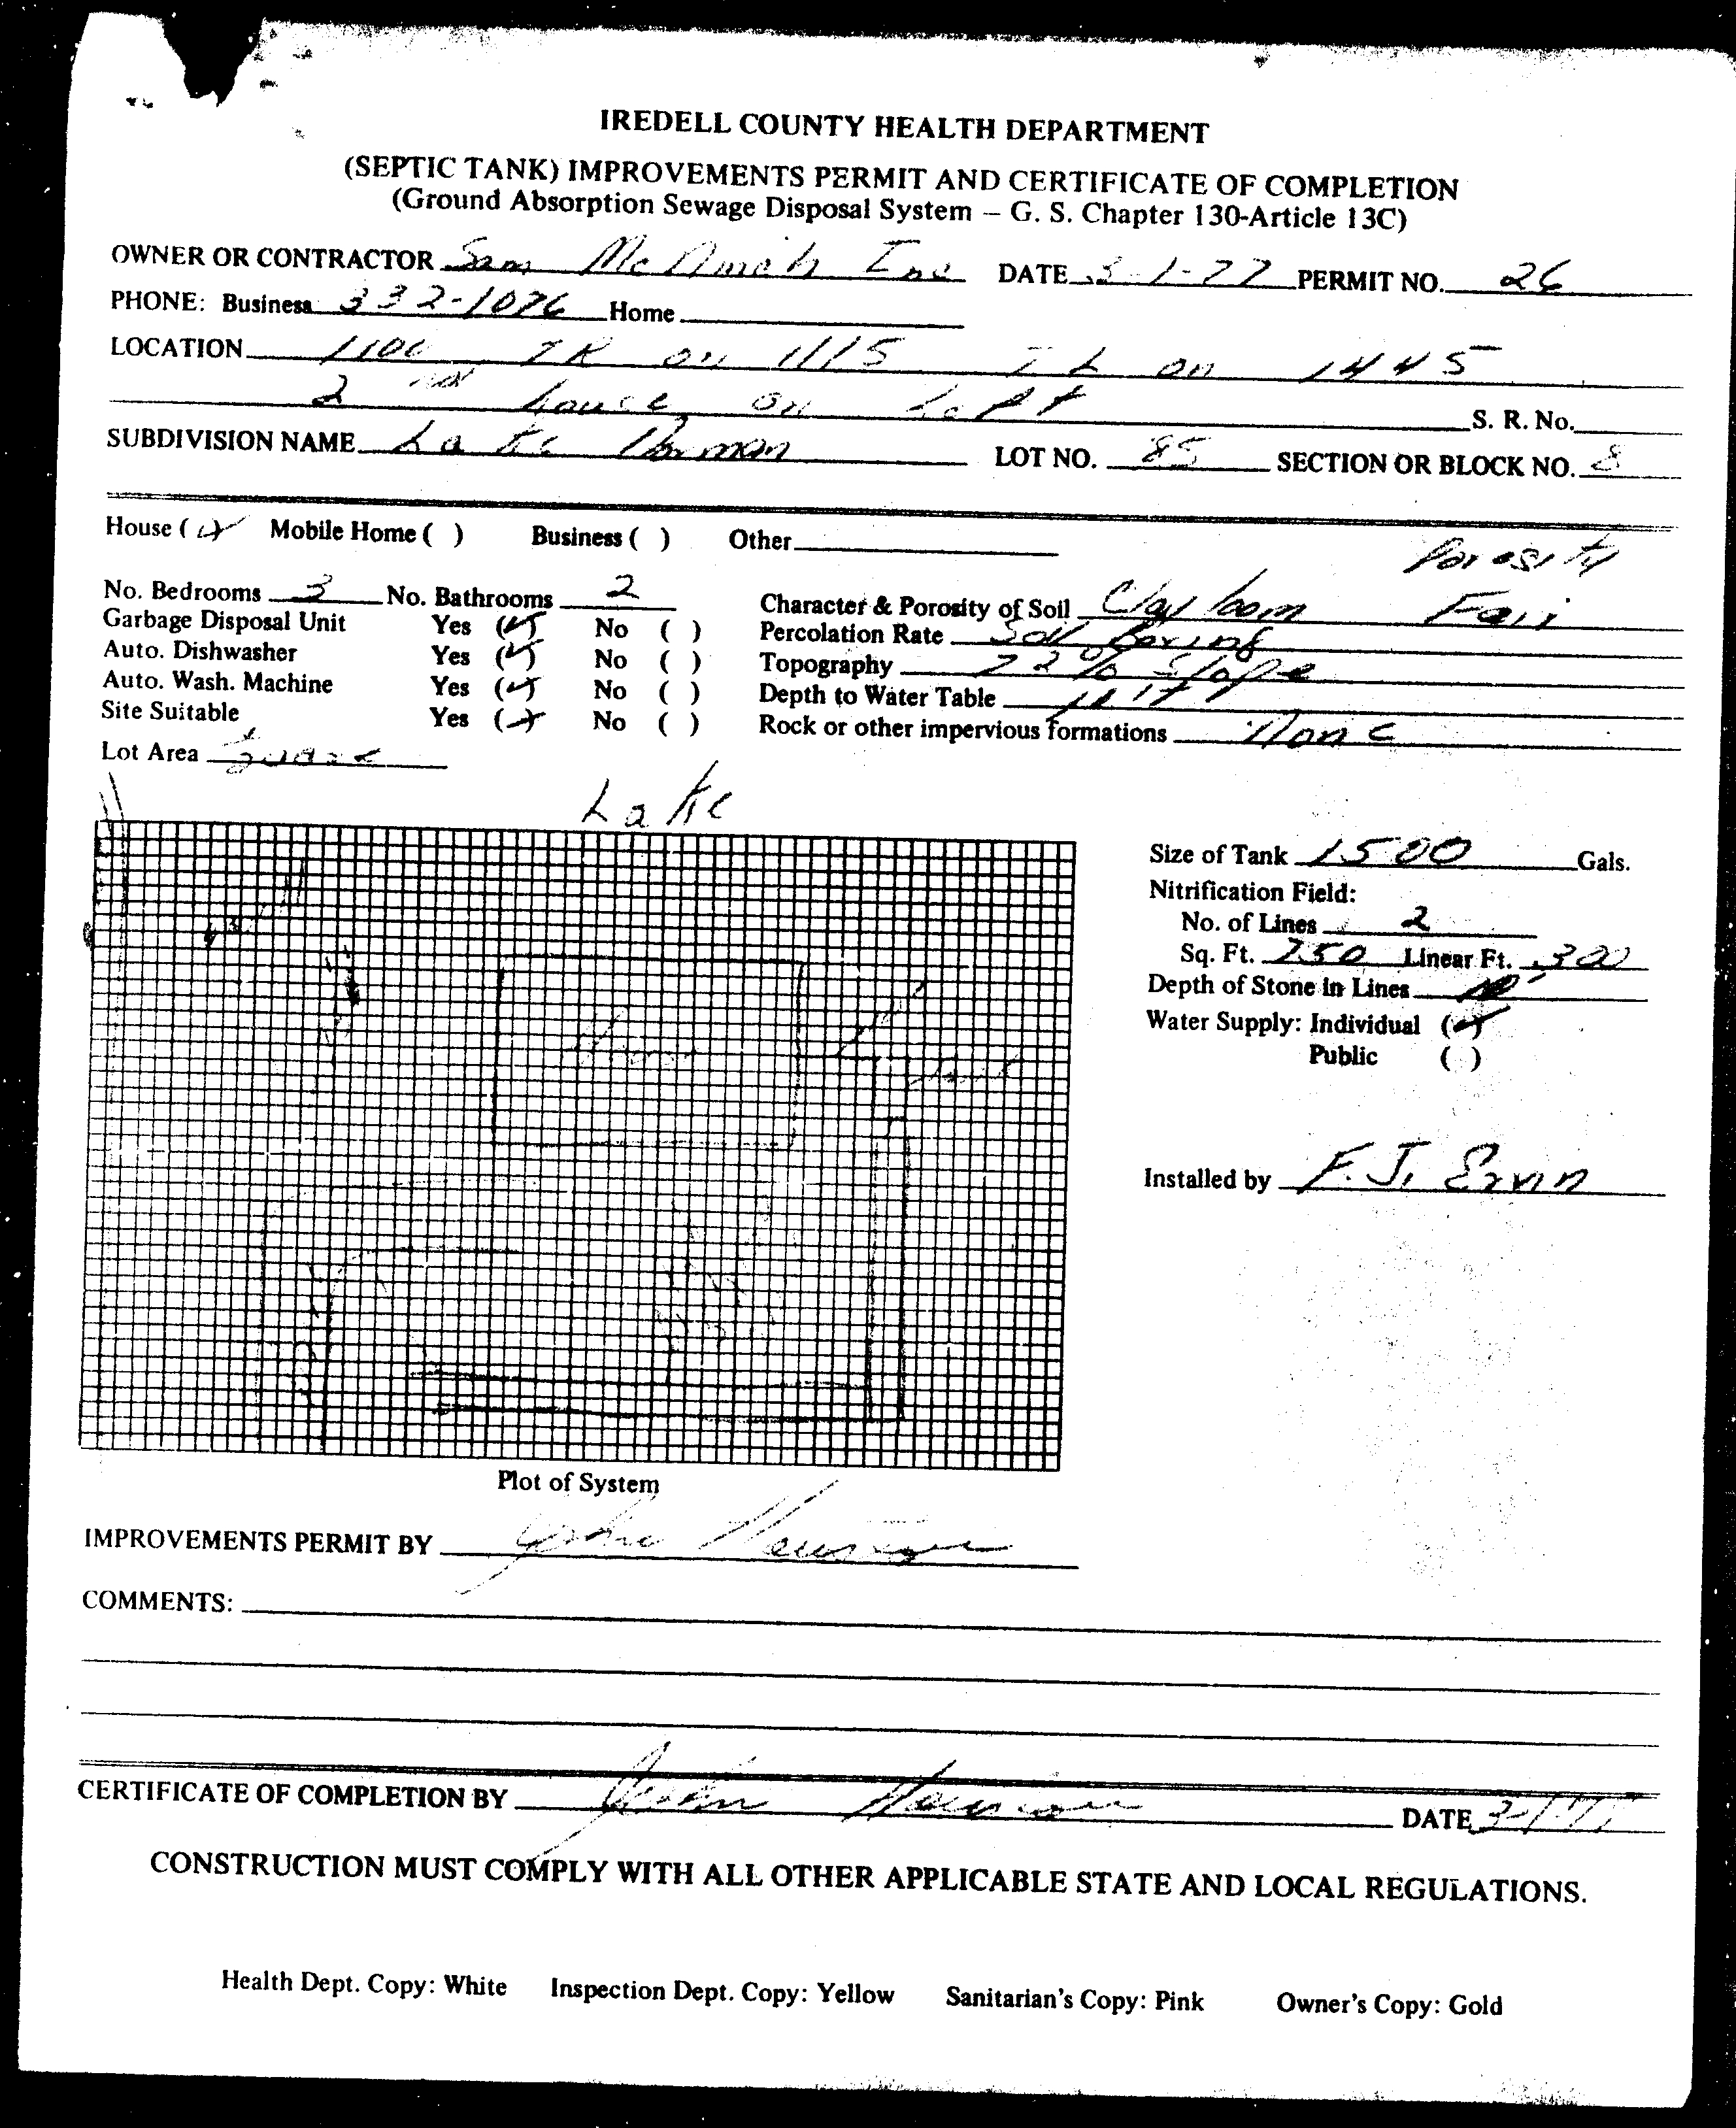 IREDELL COUNTY HEALTH DEPARTMENT
(SEPTIC TANK) IMPROVEMENTS PERMIT AND CERTIFICATE OF COMPLETION
(Ground Absorption Sewage Disposal System – G. S. Chapter 130-Article 13C)
OWNER OR CONTRACTOR Sam Inc DATE 3-1-77 PERMIT NO. 26
PHONE: Business 332-1076 Home
LOCATION 1100 TR on 1115 TL on 1445
2nd house on Left S. R. No.
SUBDIVISION NAME Lake Norman LOT NO. 85 SECTION OR BLOCK NO. 8
House (✓) Mobile Home ( ) Business ( ) Other
Porosity
No. Bedrooms 3 No. Bathrooms 2 Character & Porosity of Soil Clay loam Fair
Garbage Disposal Unit Yes (✓) No ( ) Percolation Rate Soil Boring
Auto. Dishwasher Yes (✓) No ( ) Topography % Slope
Auto. Wash. Machine Yes (✓) No ( ) Depth to Water Table
Site Suitable Yes (✓) No ( ) Rock or other impervious formations None
Lot Area
Lake
Size of Tank 1500 Gals.
Nitrification Field:
No. of Lines 2
Sq. Ft. 750 Linear Ft. 300
Depth of Stone in Lines
Water Supply: Individual (✓)
Public ( )
Installed by F. J. Ervin
Plot of System
IMPROVEMENTS PERMIT BY John
COMMENTS:
CERTIFICATE OF COMPLETION BY John DATE 3-1-77
CONSTRUCTION MUST COMPLY WITH ALL OTHER APPLICABLE STATE AND LOCAL REGULATIONS.
Health Dept. Copy: White Inspection Dept. Copy: Yellow Sanitarian's Copy: Pink Owner's Copy: Gold